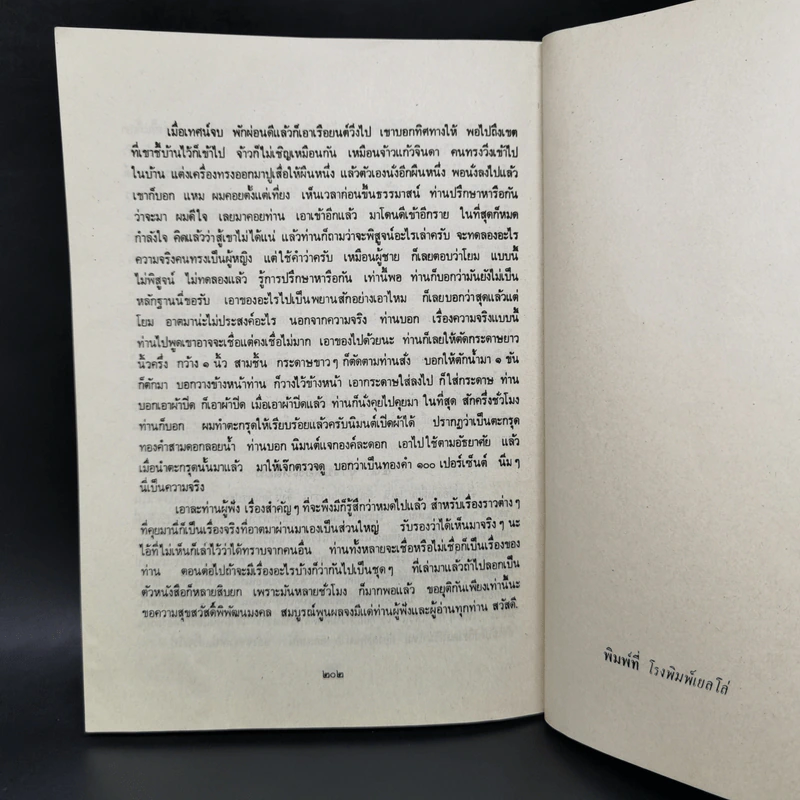 เมื่อเทศน์จบ พักผ่อนดีแล้วก็เอาเรือยนต์วิ่งไป เขาบอกทิศทางให้ พอไปถึงเขต
ที่เขาชี้บ้านไว้ก็เข้าไป จ้าวก็ไม่เชิญเหมือนกัน เหมือนจ้าวแก้วจินดา คนทรงวิ่งเข้าไป
ในบ้าน แต่งเครื่องทรงออกมาปูเสื่อให้ผืนหนึ่ง แล้วตัวเองนั่งอีกผืนหนึ่ง พอนั่งลงไปแล้ว
เขาก็บอก แหม ผมคอยตั้งแต่เที่ยง เห็นเวลาก่อนขึ้นธรรมาสน์ ท่านปรึกษาหารือกัน
ว่าจะมา ผมดีใจ เลยมาคอยท่าน เอาเข้าอีกแล้ว มาโดนดีเข้าอีกราย ในที่สุดก็หมด
กำลังใจ คิดแล้วว่าสู้เขาไม่ได้แน่ แล้วท่านก็ถามว่าจะพิสูจน์อะไรเล่าครับ จะทดลองอะไร
ความจริงคนทรงเป็นผู้หญิง แต่ใช้คำว่าครับ เหมือนผู้ชาย ก็เลยตอบว่าโยม แบบนี้
ไม่พิสูจน์ ไม่ทดลองแล้ว รู้การปรึกษาหารือกัน เท่านี้พอ ท่านก็บอกว่ามันยังไม่เป็น
หลักฐานนี่ขอรับ เอาของอะไรไปเป็นพยานสักอย่างเอาไหม ก็เลยบอกว่าสุดแล้วแต่
โยม อาตมาน่ะไม่ประสงค์อะไร นอกจากความจริง ท่านบอก เรื่องความจริงแบบนี้
ท่านไปพูดเขาอาจจะเชื่อแต่คงเชื่อไม่มาก เอาของไปด้วยนะ ท่านก็เลยให้ตัดกระดาษยาว
นิ้วครึ่ง กว้าง ๑ นิ้ว สามชิ้น กระดาษขาวๆ ก็ตัดตามท่านสั่ง บอกให้ตักน้ำมา ๑ ขัน
ก็ตักมา บอกวางข้างหน้าท่าน ก็วางไว้ข้างหน้า เอากระดาษใส่ลงไป ก็ใส่กระดาษ ท่าน
บอกเอาผ้าปิด ก็เอาผ้าปิด เมื่อเอาผ้าปิดแล้ว ท่านก็นั่งคุยไปคุยมา ในที่สุด สักครึ่งชั่วโมง
ท่านก็บอก ผมทำตะกรุดให้เรียบร้อยแล้วครับนิมนต์เปิดผ้าได้ ปรากฏว่าเป็นตะกรุด
ทองคำสามดอกลอยน้ำ ท่านบอก นิมนต์แจกองค์ละดอก เอาไปใช้ตามอัธยาศัย แล้ว
เมื่อนำตะกรุดนั้นมาแล้ว มาให้เจ๊กตรวจดู บอกว่าเป็นทองคำ ๑๐๐ เปอร์เซ็นต์ นึ่มๆ
นี่เป็นความจริง
เอาละท่านผู้ฟัง เรื่องสำคัญๆ ที่จะพึงมีก็รู้สึกว่าหมดไปแล้ว สำหรับเรื่องราวต่างๆ
ที่คุยมานี่ก็เป็นเรื่องจริงที่อาตมาผ่านมาเองเป็นส่วนใหญ่ รับรองว่าได้เห็นมาจริงๆ นะ
ไอ้ที่ไม่เห็นก็เล่าไว้ว่าได้ทราบจากคนอื่น ท่านทั้งหลายจะเชื่อหรือไม่เชื่อก็เป็นเรื่องของ
ท่าน ตอนต่อไปถ้าจะมีเรื่องอะไรบ้างก็ว่ากันไปเป็นชุดๆ ที่เล่ามาแล้วถ้าไปลอกเป็น
ตัวหนังสือก็หลายสิบยก เพราะมันหลายชั่วโมง ก็มากพอแล้ว ขอยุติกันเพียงเท่านี้นะ
ขอความสุขสวัสดิ์พิพัฒนมงคล สมบูรณ์พูนผลจงมีแต่ท่านผู้ฟังและผู้อ่านทุกท่าน สวัสดี.
๒๐๒
พิมพ์ที่ โรงพิมพ์เยลโล่